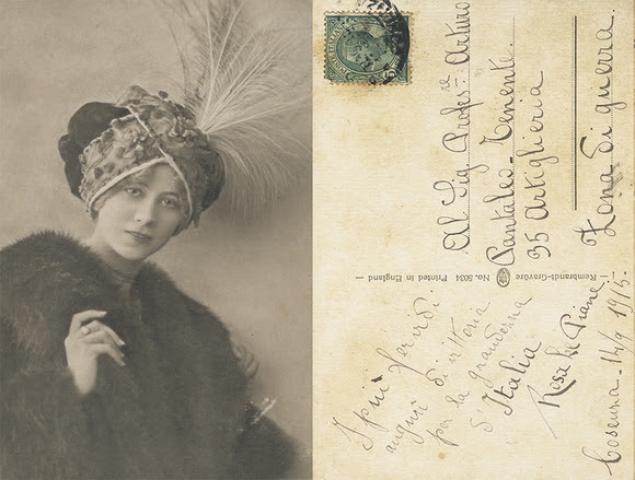 Al Sig. Profes.re Arturo
Pantaleo - Tenente
35 Artiglieria
Zona di guerra.
Rembrandt-Gravüre No. 5034 Printed in England
I più fervidi
auguri di vittoria
per la grandezza
d'Italia
Rosa De
Cosenza - 14/9 1915.